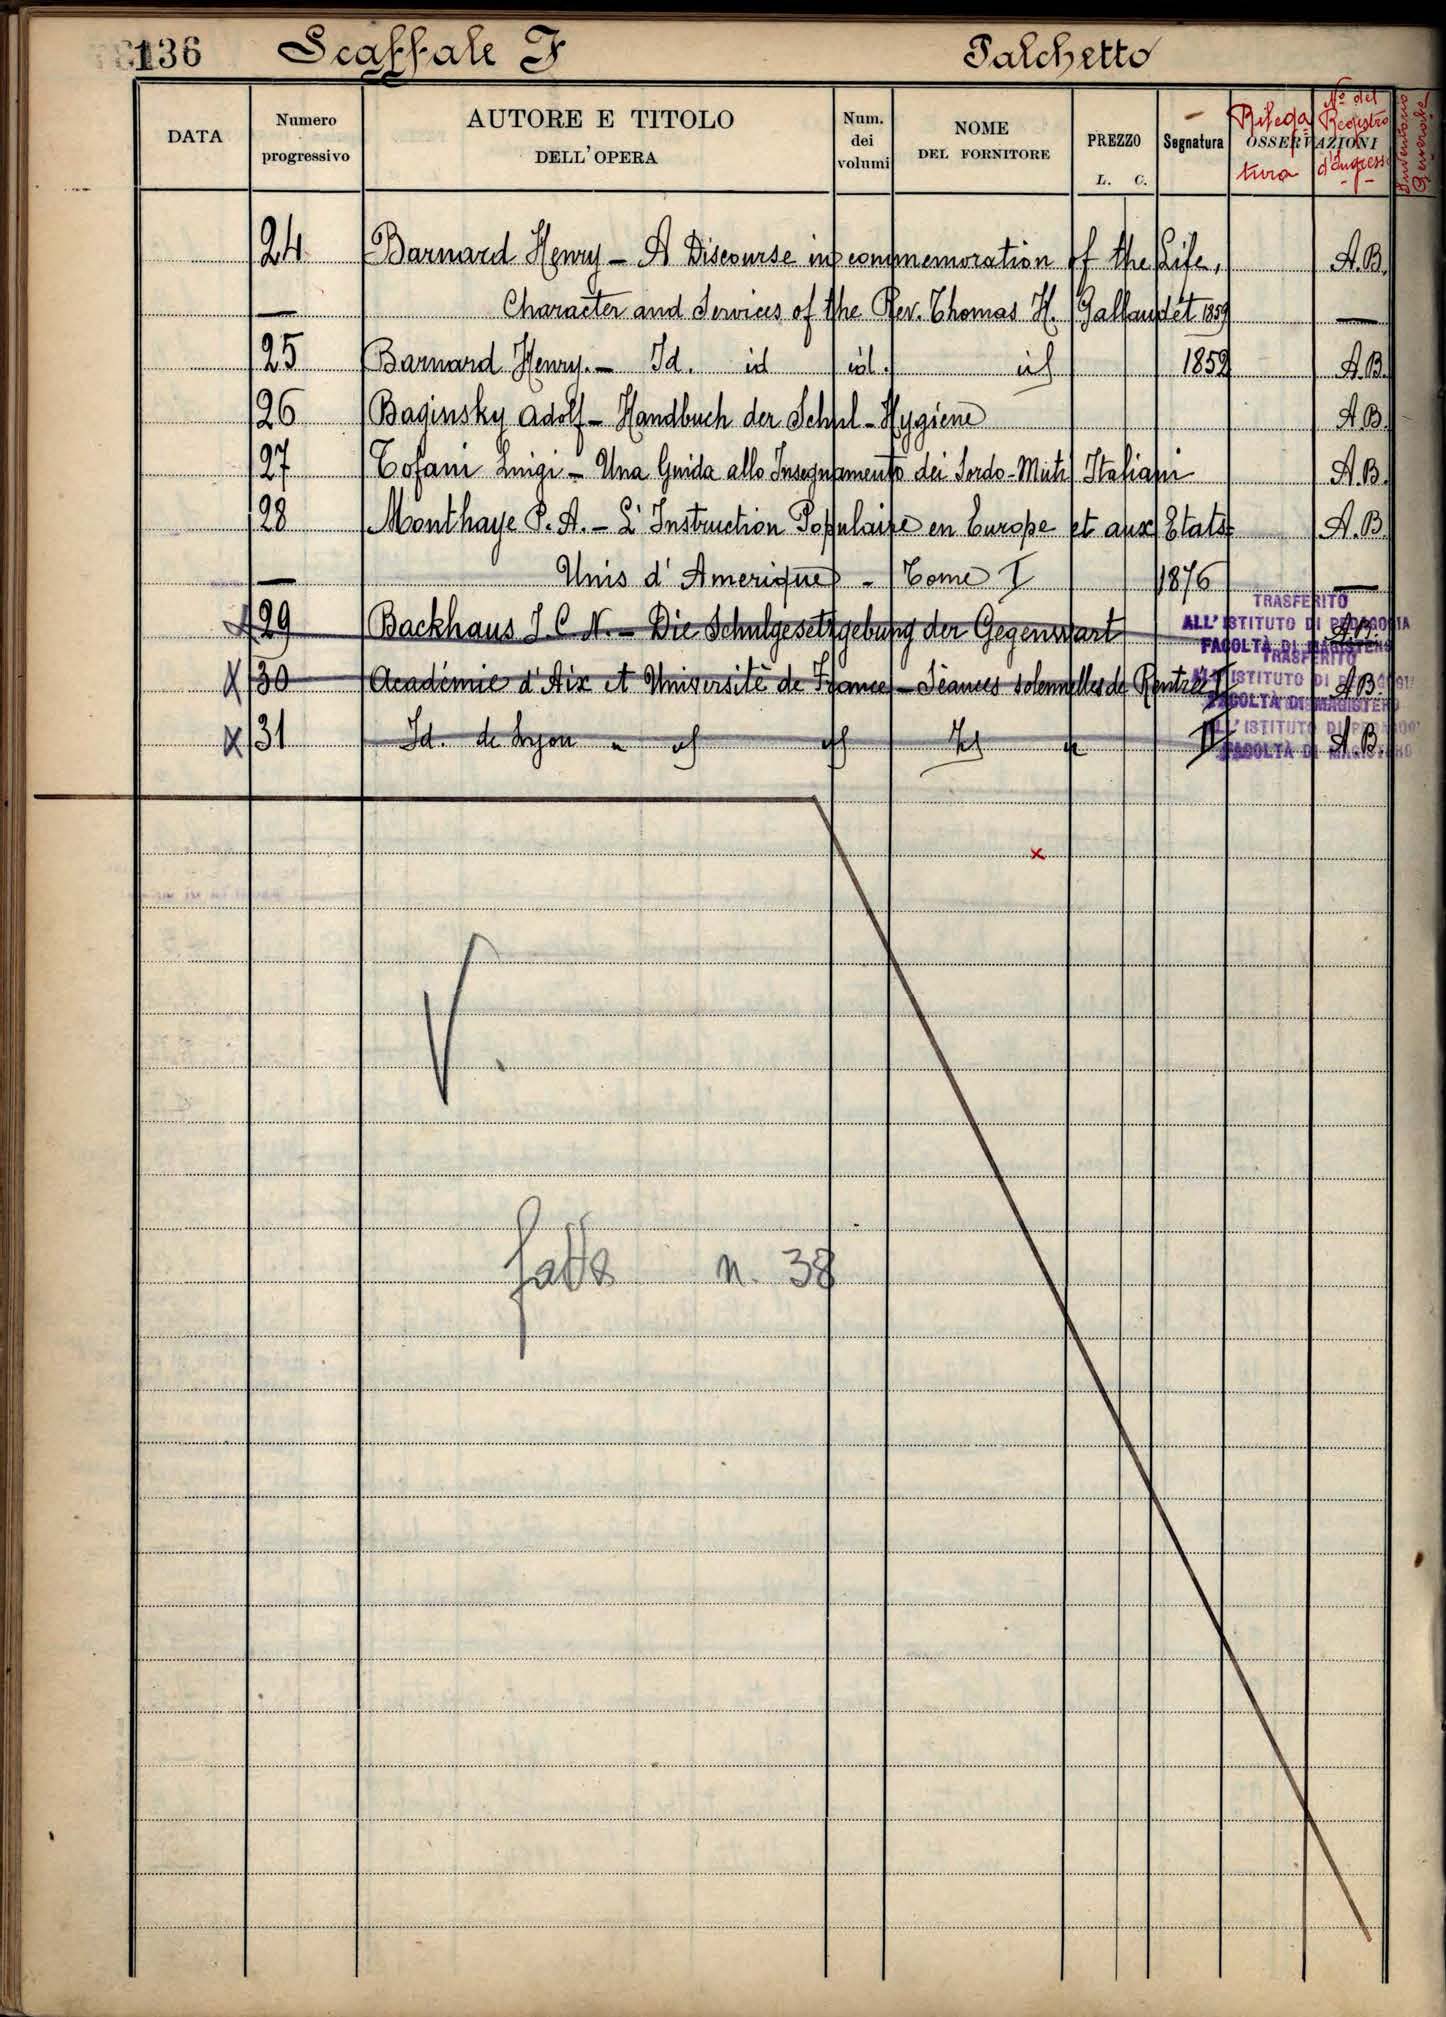 136 Scaffale F Palchetto
DATA Numero progressivo AUTORE E TITOLO DELL'OPERA Num. dei volumi NOME DEL FORNITORE PREZZO L. C. Segnatura OSSERVAZIONI
Rilega tura Nº del Registro d'Ingresso Inventario Generale
24 Barnard Henry – A Discourse in commemoration of the Life, A.B.
— Character and Services of the Rev. Thomas H. Gallaudet 1852 —
25 Barnard Henry. – Id. id id. id 1852 A.B.
26 Baginsky Adolf – Handbuch der Schul-Hygiene A.B.
27 Tofani Luigi – Una Guida allo Insegnamento dei Sordo-Muti Italiani A.B.
28 Monthaye P. A. – L'Instruction Populaire en Europe et aux Etats- A.B.
— Unis d'Amerique – Tome I 1876 —
TRASFERITO
X 29 Backhaus J. C. N. – Die Schulgesetzgebung der Gegenwart ALL'ISTITUTO DI PEDAGOGIA A.B.
FACOLTÀ DI MAGISTERO
TRASFERITO
X 30 Académie d'Aix et Université de France – Séances solennelles de Rentrée I ALL'ISTITUTO DI PEDAGOGIA A.B.
FACOLTÀ DI MAGISTERO
X 31 Id. de Lyon " id id Id " II ALL'ISTITUTO DI PEDAGOGIA A.B.
FACOLTÀ DI MAGISTERO
x
V.
fatto n. 38